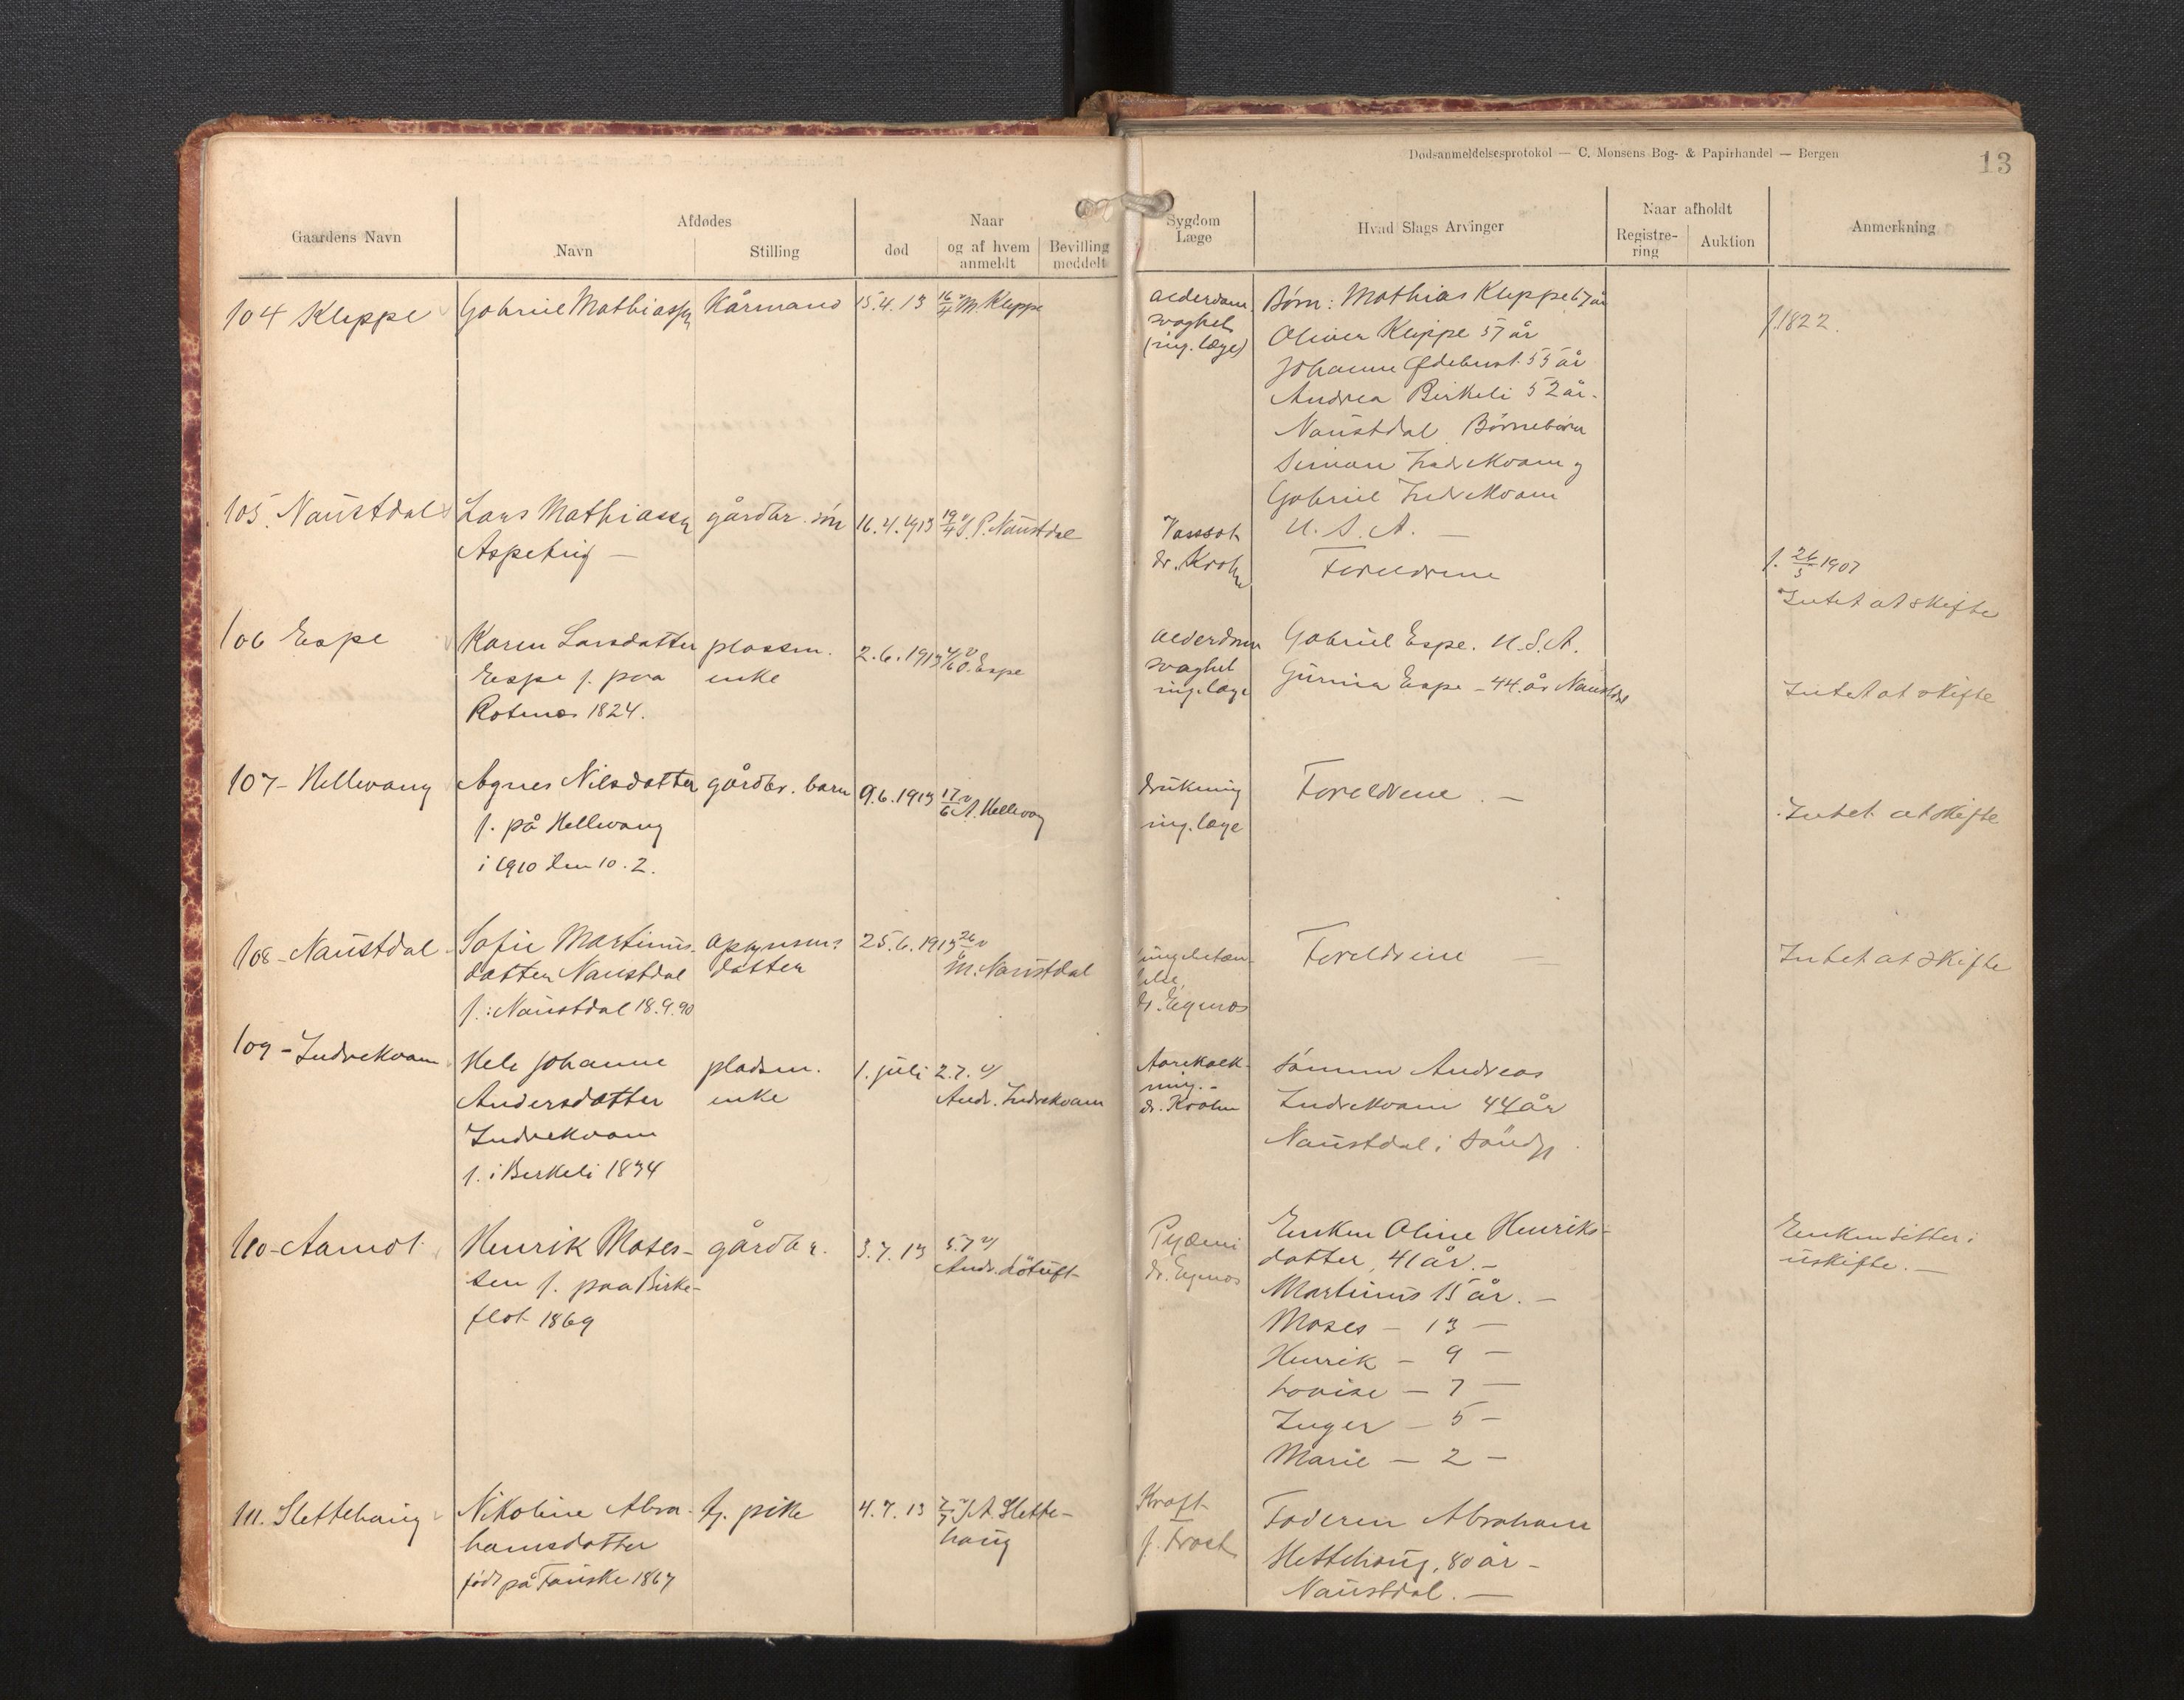 Dødsanmeldelsesprotokol — C. Monsens Bog- & Papirhandel — Bergen
13
Gaardens Navn
Afdødes
Navn
Stilling
død
Naar
og af hvem anmeldt
Bevilling meddelt
Sygdom
Læge
Hvad Slags Arvinger
Naar afholdt
Registrering
Auktion
Anmerkning
104 Kleppe Gabriel Mathiassen Kårmand 15.4.13 16/4 v M. Kleppe
Alderdoms
svaghet
(ing. læge)
Børn: Mathias Kleppe 67 år
Kleppe 57 år
Johanne 55 år
Andrea Birkeli 52 år.
Naustdal. Børnebørn
Simon Indrekvam og
Gabriel Indrekvam
U. S. A. —
f. 1822.
105. Naustdal Lars Mathiassen gårdbr. søn 16.4.1913 19/4 v P. Naustdal
—
dr. Krohn
Foreldrene
f. 1907
Intet at skifte
106 Espe Karen Larsdatter plassm. 2.6.1913 O. Espe
Espe f. paa enke
Rotnes 1824.
Alderdoms
svaghet
ing. læge
Gabriel Espe. U.S.A.
Espe — 44 år Naustdal
Intet at skifte
107- Hellevang Agnes Nilsdatter gårdbr. barn 9.6.1913 17/6 v A. Hellevang
f. på Hellevang
i 1910 den 10.2.
drukning
ing. læge
Foreldrene. —
Intet at skifte
108- Naustdal Sofie Martinus- datter 25.6.1913 26 v
datter Naustdal
M. Naustdal
f. i Naustdal 18.9.90
dr. Egenæs
Foreldrene —
Intet at skifte
109- Indrekvam Johanne pladsm. 1. juli 2.7. v/
Andersdatter enke Andr. Indrekvam
Indrekvam
f. i Birkeli 1834
Aarekalk-
ning.-
dr. Krohn
Sønnen Andreas
Indrekvam 44 år
Naustdal i
110- Aamot Henrik Moses- gårdbr. 3.7.13 5.7 v/
sen f. paa Birke- Andr.
flot 1869
Pyæmi
dr. Egenæs
Enken Oline Henriks-
datter, 41 år.—
Martinus 15 år. —
Moses — 13 —
Henrik — 9 —
Lovise — 7 —
Inger — 5 —
Marie — 2 —
Enken sitter i
uskifte. —
111. Slettehaug Nikoline Abra- tj. pike 4.7.13 A. Slette-
hamsdatter haug
født på Fauske 1867
Kræft
Faderen Abraham
Slettehaug, 80 år —
Naustdal. —